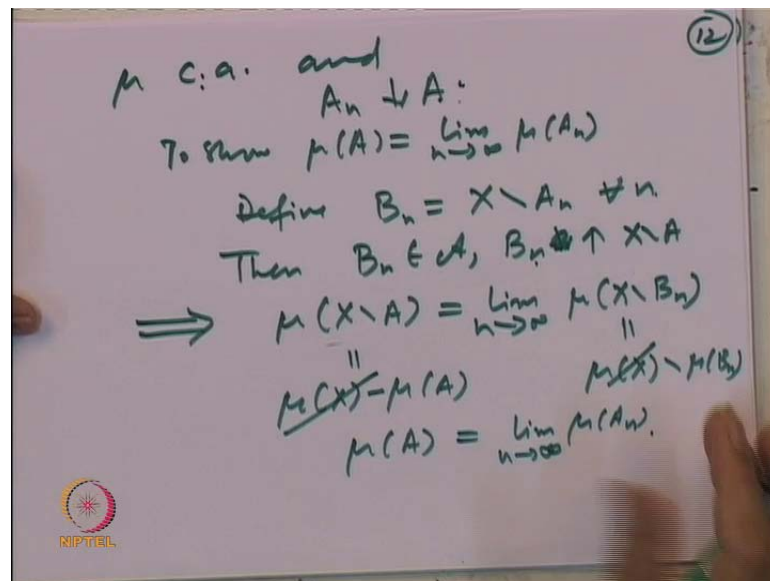 (12)
μ c.a. and
A_n ↓ A :
To show μ(A) = lim_{n→∞} μ(A_n)
Define B_n = X \ A_n ∀ n.
Then B_n ∈ 𝒜, B_n ↑ X \ A
⟹ μ(X \ A) = lim_{n→∞} μ(X \ B_n)
|| ||
μ(X) - μ(A) μ(X) \ μ(B_n)
μ(A) = lim_{n→∞} μ(A_n).
NPTEL